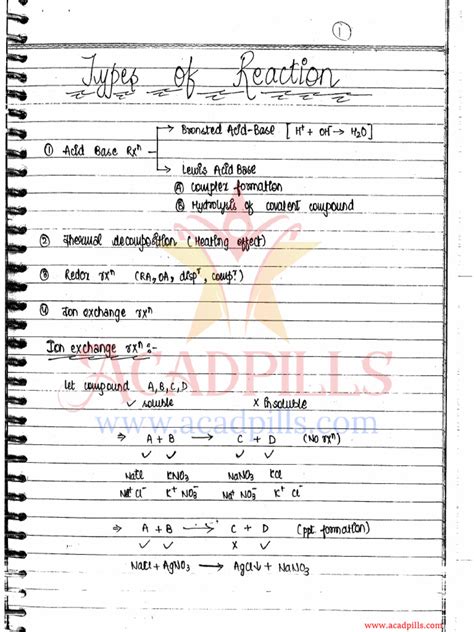 1
Types of Reaction
① Acid Base Rxⁿ → Bronsted Acid-Base [H⁺ + OH⁻ → H₂O]
→ Lewis Acid Base
Ⓐ complex formation
Ⓑ Hydrolysis of covalent compound
② Thermal decomposition (Heating effect)
③ Redox rxⁿ (RA, OA, dispᵀ, compᵀ)
④ Ion exchange rxⁿ
Ion exchange rxⁿ :-
ACADPILLS
let compound A, B, C, D
✓ soluble × insoluble
www.acadpills.com
⇒ A + B → C + D (No rxⁿ)
✓ ✓ ✓ ✓
NaCl KNO₃ NaNO₃ KCl
Na⁺ Cl⁻ K⁺ NO₃⁻ Na⁺ NO₃⁻ K⁺ Cl⁻
⇒ A + B → C + D (ppt formation)
✓ ✓ × ✓
NaCl + AgNO₃ → AgCl↓ + NaNO₃
www.acadpills.com